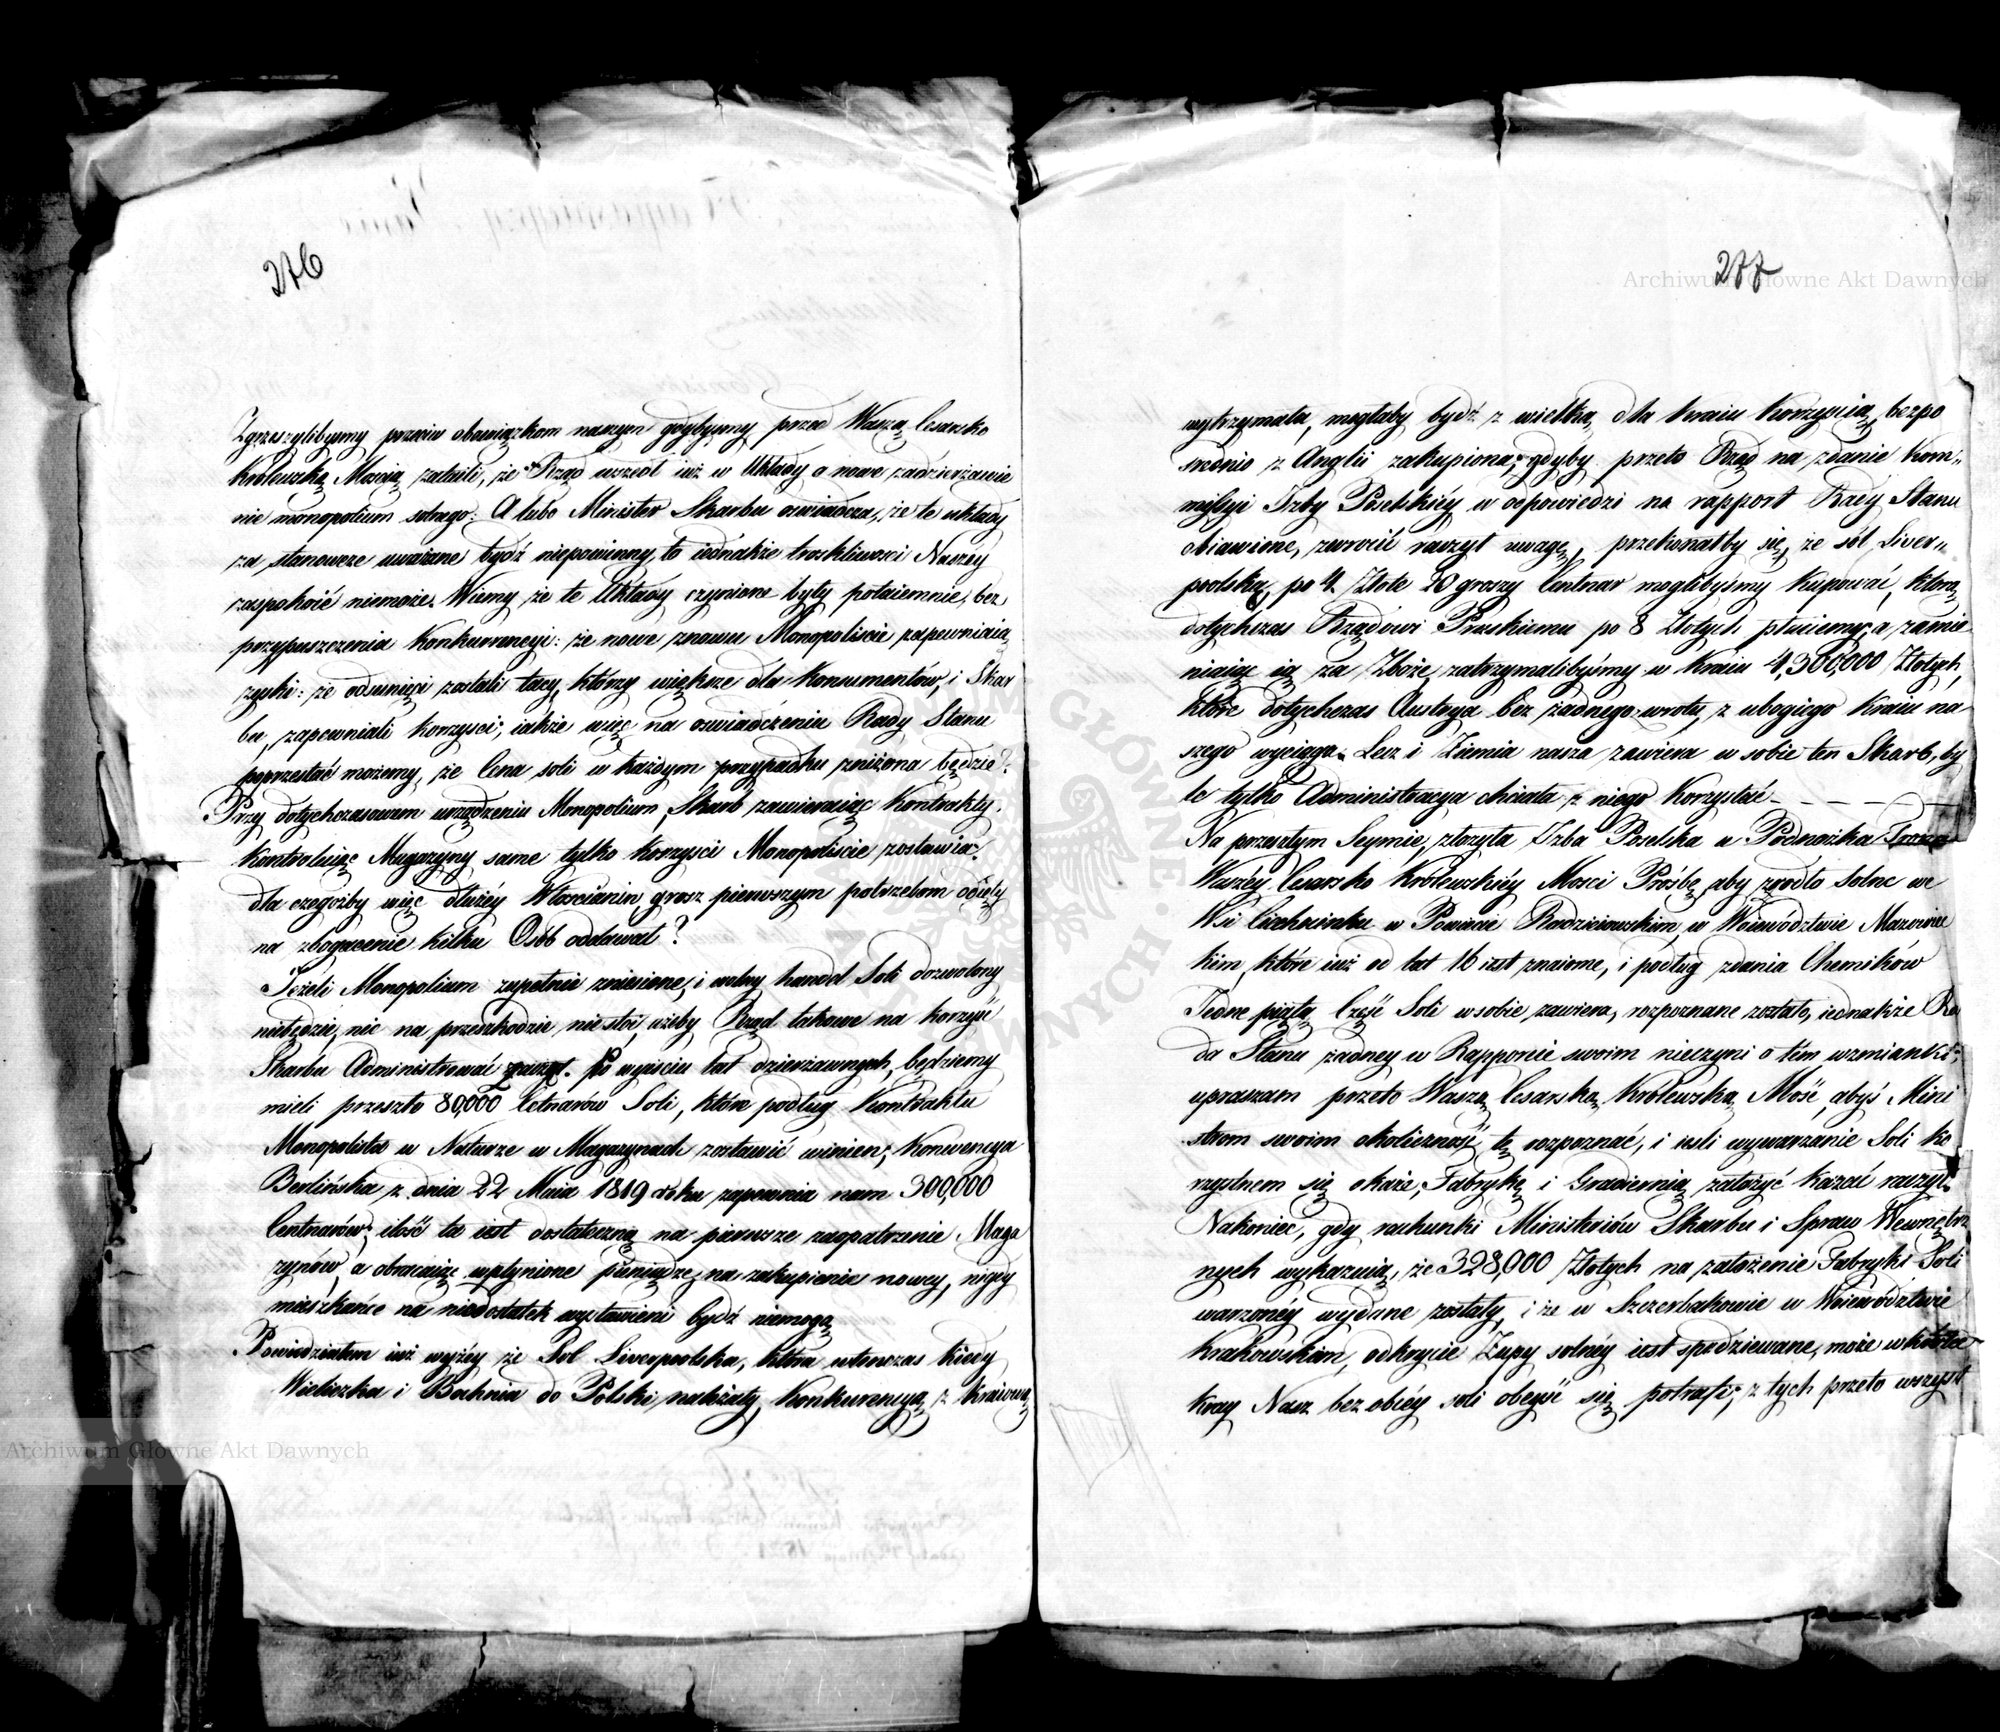 276
Zgrzeszylibysmy przeciw obowiązkom naszym gdybysmy przed Waszą Cesarsko
Królewską Moscią zataili, że Rząd wszedł iuż w Układy o nowe zadzierżawie
nie monopolium solnego. A lubo Minister Skarbu oswiadcza, że te układy
za stanowcze uważane bydź niepowinny, to iednakże troskliwosci Naszéy
zaspokoić niemoże. Wiemy że te Układy czynione były potaiemnie, bez
przypuszczenia Konkurrencyi: że nowe znowu Monopoliście zapewniaią
zyski: że odsunięci zostali tacy, którzy większe dla Konsumentów, i Skar
bu, zapewniali korzysci; iakże więc na oswiadczeniu Rady Stanu
poprzestać możemy, że Cena soli w każdym przypadku zniżona będzie?
Przy dotychczasowem urządzeniu Monopolium, Skarb zawieraiąc Kontrakty.
Kontroluiąc Magazyny same tylko korzysci Monopoliście zostawia.
dla czegożby więc dłużéy Włoscianin grosz pierwszym potrzebom odięty
na zbogacenie kilku Osób oddawał?
Jeżeli Monopolium zupełnie zniesione, i wolny handel Soli dozwolony
niebędzie, nic na przeszkodzie nie stoi, ażeby Rząd takowe na korzyść
Skarbu Administrować zaczął. Po wyisciu lat dzierżawnych, będziemy
mieli przeszło 80,000 Cetnarów Soli, które podług Kontraktu
Monopolista w Naturze w Magazynach zostawić winien; Konwencya
Berlińska z dnia 22 Maia 1819 roku zapewnia nam 300,000
Centnarów; ilość ta iest dostateczną na pierwsze zaopatrzenie Maga
zynów, a obracaiąc wpłynione pieniądze, na zakupienie nowey, nigdy
mieszkańce na niedostatek wystawieni bydź niemogą
Powiedziałem iuż wyżéy że Sol Liverpoolska, która wtenczas kiedy
Wieliczka i Bochnia do Polski należały, Konkurencyą z Kraiową
277
wytrzymała, mogłaby bydź z wielką dla kraiu korzyscią, bezpo
srednio z Anglii zakupiona; gdyby przeto Rząd na zdanie Kom„
missyi Izby Poselskiéy w odpowiedzi na rapport Rady Stanu
obiawione, zwrócił raczył uwagę, przekonałby się, że sól Liver„
poolską, po 4 Złote 20 groszy Centnar moglibyśmy kupować, którą
dotychczas Rządowi Pruskiemu po 8 Złotych płaciemy; a zamie
niaiąc ią za Zboże, zatrzymalibyśmy w Kraiu 4,300,000 Złotych,
które dotychczas Austrya bez żadnego zwrotu, z ubogiego Kraiu na
szego wyciąga. Lecz i Ziemia nasza zawiera w sobie ten Skarb, by
le tylko Administracya chciała z niego Korzystać _ _ _ _
Na przeszłym Seymie, złożyła Izba Poselska u Podnożka Tronu
Waszéy Cesarsko Królewskiéy Mosci Prośbę, aby zrodło Solne we
Wsi Ciechocinku w Powiecie Radzieiowskim, w Woiewództwie Mazowiec
kim, które iuż od lat 16 iest znaiome, i podług zdania Chemików
Jedne piątą Część Soli w sobie zawiera, rozpoznane zostało, iednakże Ra
da Stanu żadney w Rapporcie swoim nieczyni o tém wzmianki;
upraszam przeto Waszą Cesarską Królewską Mość, abyś Mini
strom swoim okoliczność tę rozpoznać, i iesli wywarzanie Soli ko
rzystnem się okaże, Fabrykę i Gradiernią założyć kazać raczył.
Nakoniec, gdy rachunki Ministrów Skarbu i Spraw Wewnętrz
nych wykazuią, że 328,000 Złotych na założenie Fabryki Soli
warzonéy wydane zostały, i że w Szczerbakowie w Woiewództwie
Krakowskim, odkrycie Żupy solnéy iest spodziewane, może wkrótce
kray Nasz bez obcéy soli obeyść się potrafi; z tych przeto wszyst
Archiwum Główne Akt Dawnych
Archiwum Główne Akt Dawnych